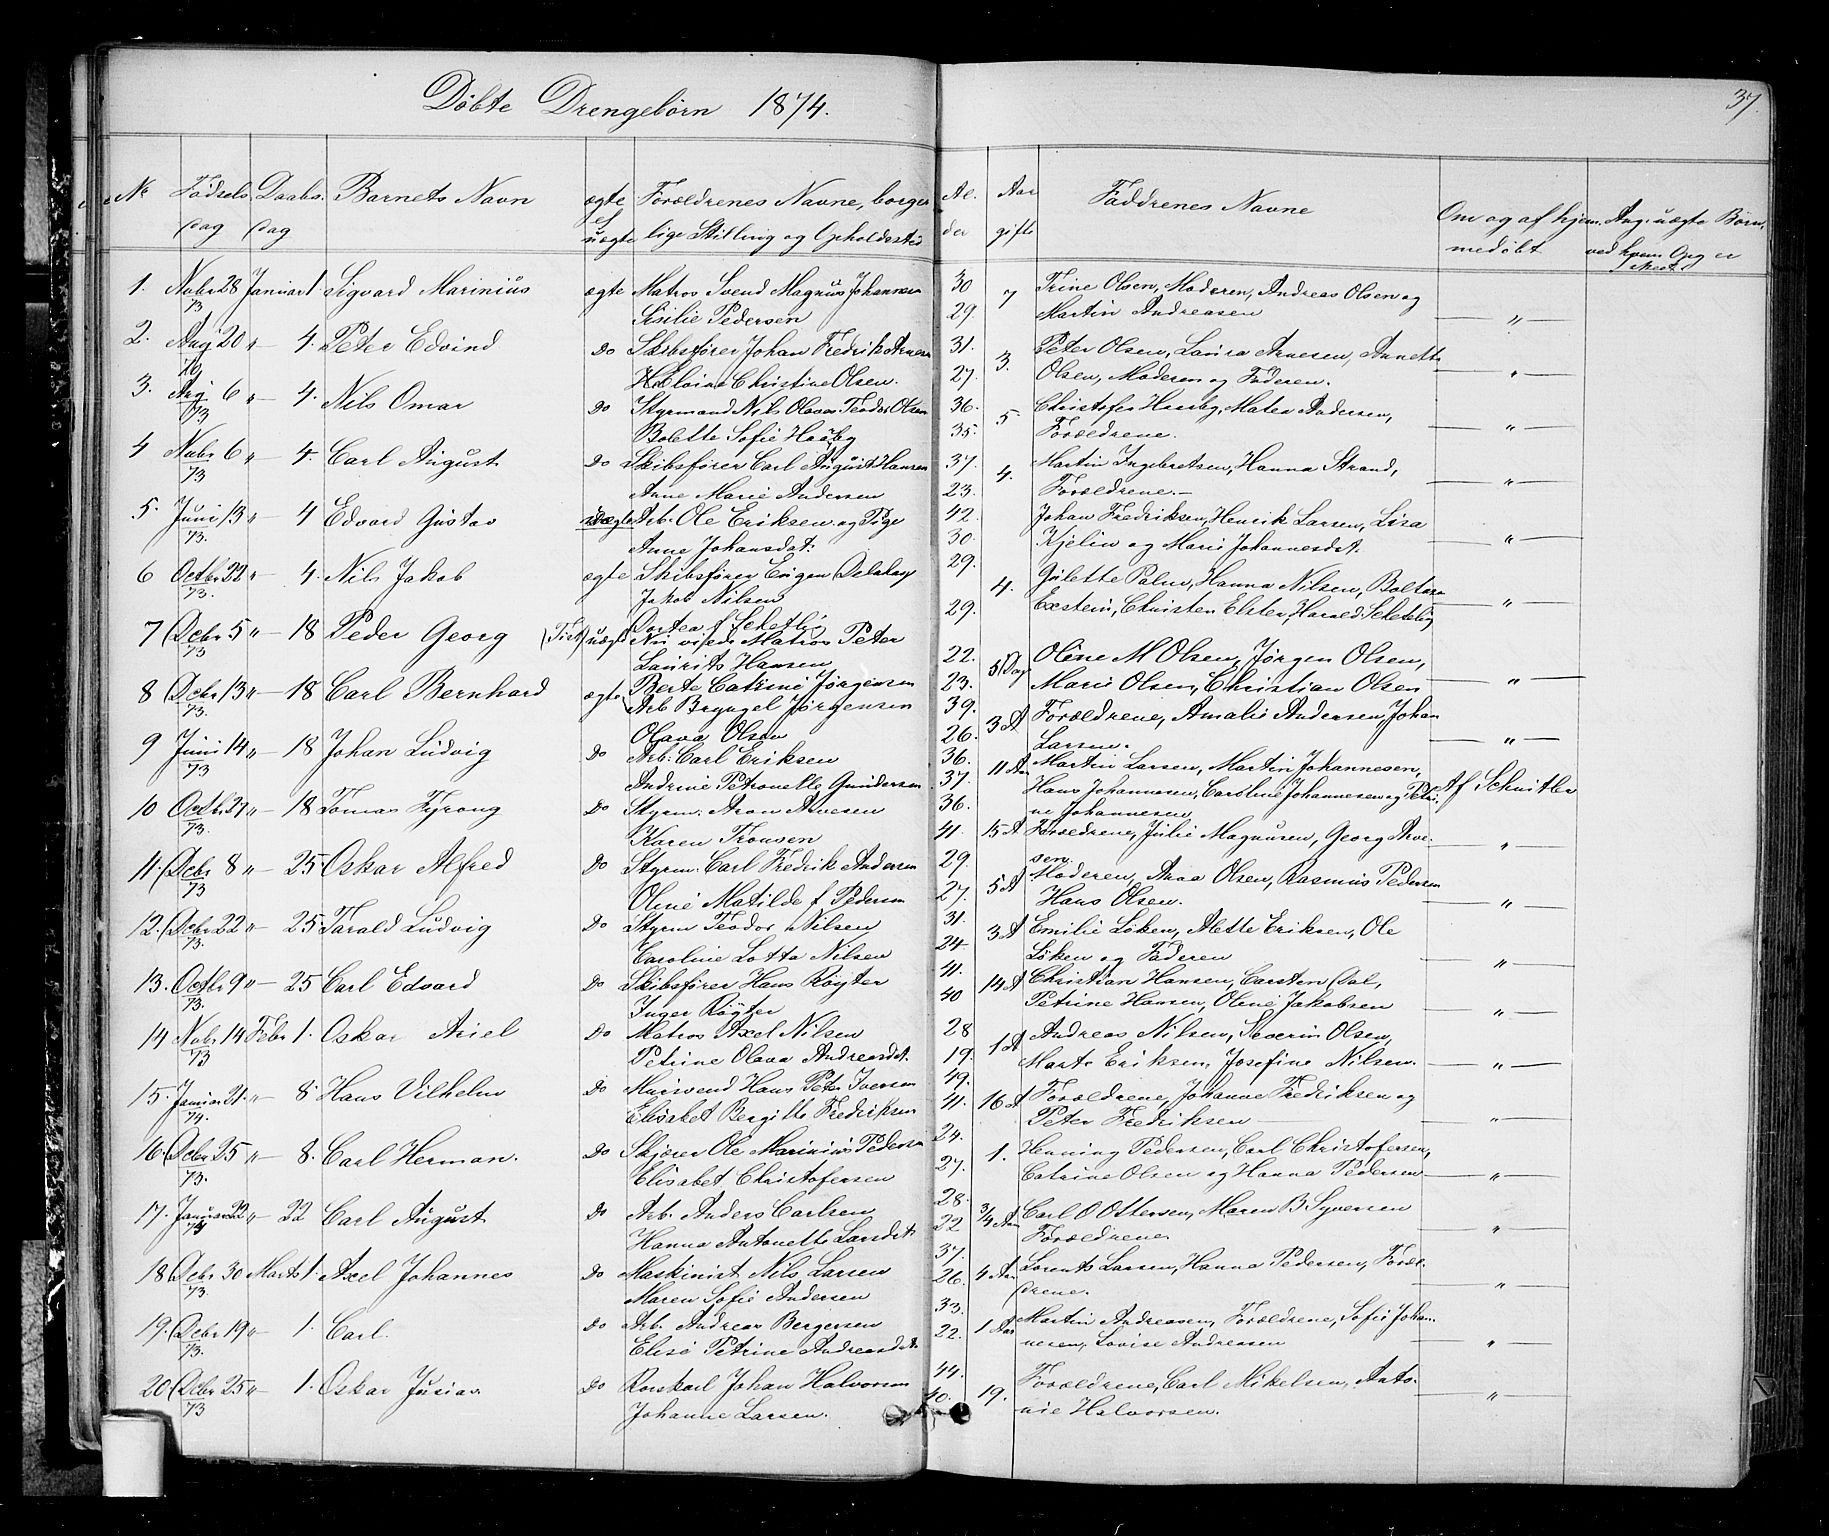 Döbte Drengebørn 1874.
37
No Fødsels dag Daabs dag Barnets Navn ægte el uægte Forældrenes Navne, borger lige Stilling og Opholdssted Al der Aar gifte Faddrenes Navne Om og af hjem medøbt Ang. uægte Børn, ved hvem Opg er
1. Nobr 28 73 Januar 1. Sigvard Marinius ægte Matros Svend Magnus Johannesen 30 7 Trine Olsen, Moderen, Andreas Olsen og
Sisilie Pedersen 29. Martin Andreasen — „ —
2. Aug 20 „ — 4. Peter Edvind Do Skibsfører Johan Fredrik Arnesen 31. 3. Peter Olsen, Laura Arnesen, Annette
Christine Olsen. 27. Olsen, Moderen og Faderen. — „ —
3. Aug 6 73 „ — 4. Nils Omar Do Styrmand Nils Olavus Teodor Olsen 36. 5 Christofer Haaby, Matea Andersen,
Bolette Sofie Haaby 35. Forældrene. — „ —
4 Nobr 6 73 „ — 4. Carl August Do Skibsfører Carl August Hansen 37. 4. Martin Ingebretsen, Hanna Strand,
Anne Marie Andersen 23. Forældrene. — „ —
5. Juni 13 73. „ — 4 Edvard Gustav uægte Arb. Ole Eriksen og Pige 42. Johan Fredriksen, Henrik Larsen, Lisa
Anne Johansdat: 30. Kjelin og Marie Johannesdat. — „ —
6 Octbr 22 73. „ — 4. Nils Jakob ægte Skibsfører Eugen 29. 4. Julette Palm, Hanna Nilsen,
Jakob Nilsen 29. Exstein, Christen Elster, Harald Schetelig — „ —
Dortea f Schetelig
7 Decbr 5 73 „ — 18 Peder Georg uægte Matros Peter 22. 5 Dag Oline M Olsen, Jørgen Olsen,
Laurits Hansen 23. Marie Olsen, Christian Olsen — „ —
Berte Catrine Jørgensen
8 Decbr 13 73. „ — 18 Carl Bernhard ægte Arb Bryngel Jørgensen 39. 3 A Forældrene, Amalie Andersen Johan
Olava Olsen 26. Larsen. — „ —
9 Juni 14 73 „ — 18 Johan Ludvig Do Arb: Carl Eriksen 36. 11 Aar Martin Larsen, Martin Johannesen,
Andrine Petronelle Gundersen 37. Hans Johannesen, Caroline Johannesen og Petri Af Schnitler
ne Johannesen
10 Octbr 27 73. „ — 18 Tomas Do Styrm. Aron Arvesen 36. 15 A Forældrene, Julie Magnusen, Georg Arve-
Karen Tronsen 41. sen. — „ —
11. Decbr 8 73 „ — 25. Oskar Alfred Do Styrm: Carl Fredrik Andersen 29. 5 A Moderen, Anna Olsen, Rasmus Pedersen
Oline Matilde f Pedersen 27. Hans Olsen. — „ —
12. Decbr 22 73. „ — 25. Tarald Ludvig Do Styrm Teodor Nilsen 31. 3 A Emilie Løken, Alette Eriksen, Ole
Caroline Lotta Nilsen 24. Løken og Faderen — „ —
13. Octbr 9 73. „ — 25 Carl Edvard Do Skibsfører Hans Røyter 41. 14 A Christian Hansen, Carsten Dal,
Inger Røyter 40 Petrine Hansen, Oline Jakobsen — „ —
14 Nobr 14 73 Febr 1. Oskar Axel Do Matros Axel Nilsen 28 1 A Andreas Nilsen, Severin Olsen,
Petrine Olava Andreasdt. 19. Marte Eriksen, Josefine Nilsen. — „ —
15. Januar 21. 74. „ — 8. Hans Vilhelm Do Murivend Hans Peter Iversen 49. 16 A Forældrene, Johanne Fredriksen og
Elisabet Bergitte Fredriksen 41. Peter Fredriksen — „ —
16. Decbr 25 73. „ — 8. Carl Herman. Do Skjærer Ole Marinius Pedersen 24. 1. Henning Pedersen, Carl Christofersen,
Elisabet Christofersen 27. Catrine Olsen og Hanna Pedersen — „ —
17. Januar 22 „ — 22 Carl August Do Arb. Anders Carlsen 28. 3/4 Aar Carl O Ottersen, Maren B Syversen
Hanna Antonette Larsdt. 22 Forældrene. — „ —
18 Decbr 30 73. Marts 1. Axel Johannes Do Maskinist Nils Larsen 37. 4 Aar Lorents Larsen, Hanna Pedersen, Foræl-
Maren Sofie Andersen 26. drene. — „ —
19. Decbr 19 73. „ — 1. Carl. Do Arb. Andreas Bergersen 33. 1 Aar Martin Andreasen, Forældrene, Sofie Johan-
Elise Petrine Andreasdt. 22. nesen, Lovise Andreasen — „ —
20 Decbr 25 73 „ — 1. Oskar Do Rorskarl Johan Halvorsen 44. 19. Forældrene, Carl Mikelsen, Anto-
Johanne Larsen. 40. nie Halvorsen. — „ —